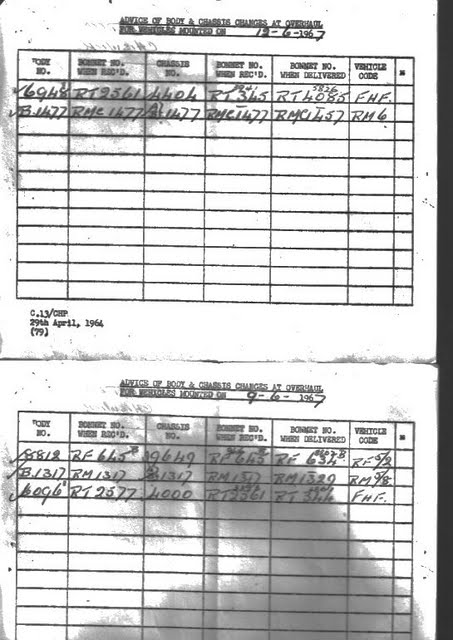 ADVICE OF BODY & CHASSIS CHANGES AT OVERHAUL
FOR VEHICLES MOUNTED ON 12-6-1967
BODY NO. BONNET NO. WHEN REC'D. CHASSIS NO. BONNET NO. WHEN REC'D. BONNET NO. WHEN DELIVERED VEHICLE CODE
6948 RT2561 4404 RT345 RT4085 FHF.
B.1477 RMC1477 1477 RMC1477 RMC1457 RM6
C.13/CHP
29th April, 1964
(79)
ADVICE OF BODY & CHASSIS CHANGES AT OVERHAUL
FOR VEHICLES MOUNTED ON 9-6-1967
BODY NO. BONNET NO. WHEN REC'D. CHASSIS NO. BONNET NO. WHEN REC'D. BONNET NO. WHEN DELIVERED VEHICLE CODE
8812 RF645 9649 RF645 RF634
B.1317 RM1317 1317 RM1317 RM1329
6096 RT2577 4000 RT2561 FHF.